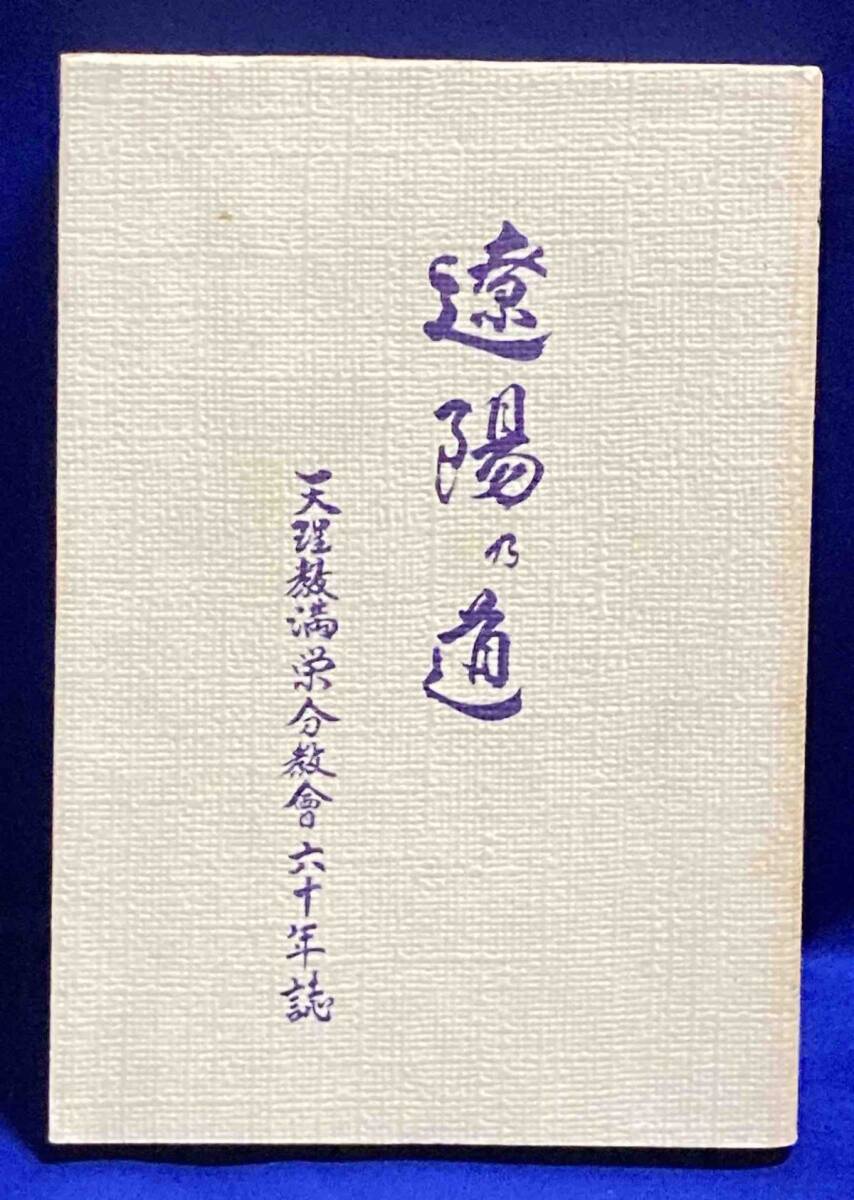 遼陽乃道
天理教満栄分教會六十年誌